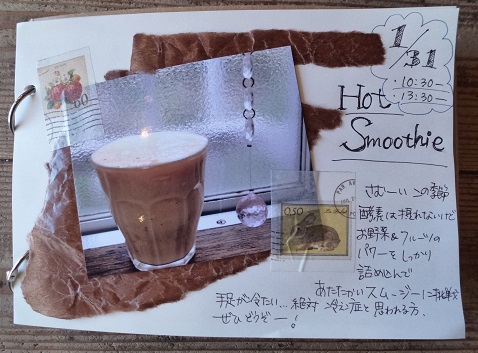 1/31
・10:30〜
・13:30〜
Hot
Smoothie
60
0.50
さむーいこの季節
酵素は摂れないけど
お野菜&フルーツの
パワーをしっかり
詰め込んで
あたたかいスムージーに挑戦☆
手足が冷たい…絶対冷え症と思われる方、
ぜひどうぞー!